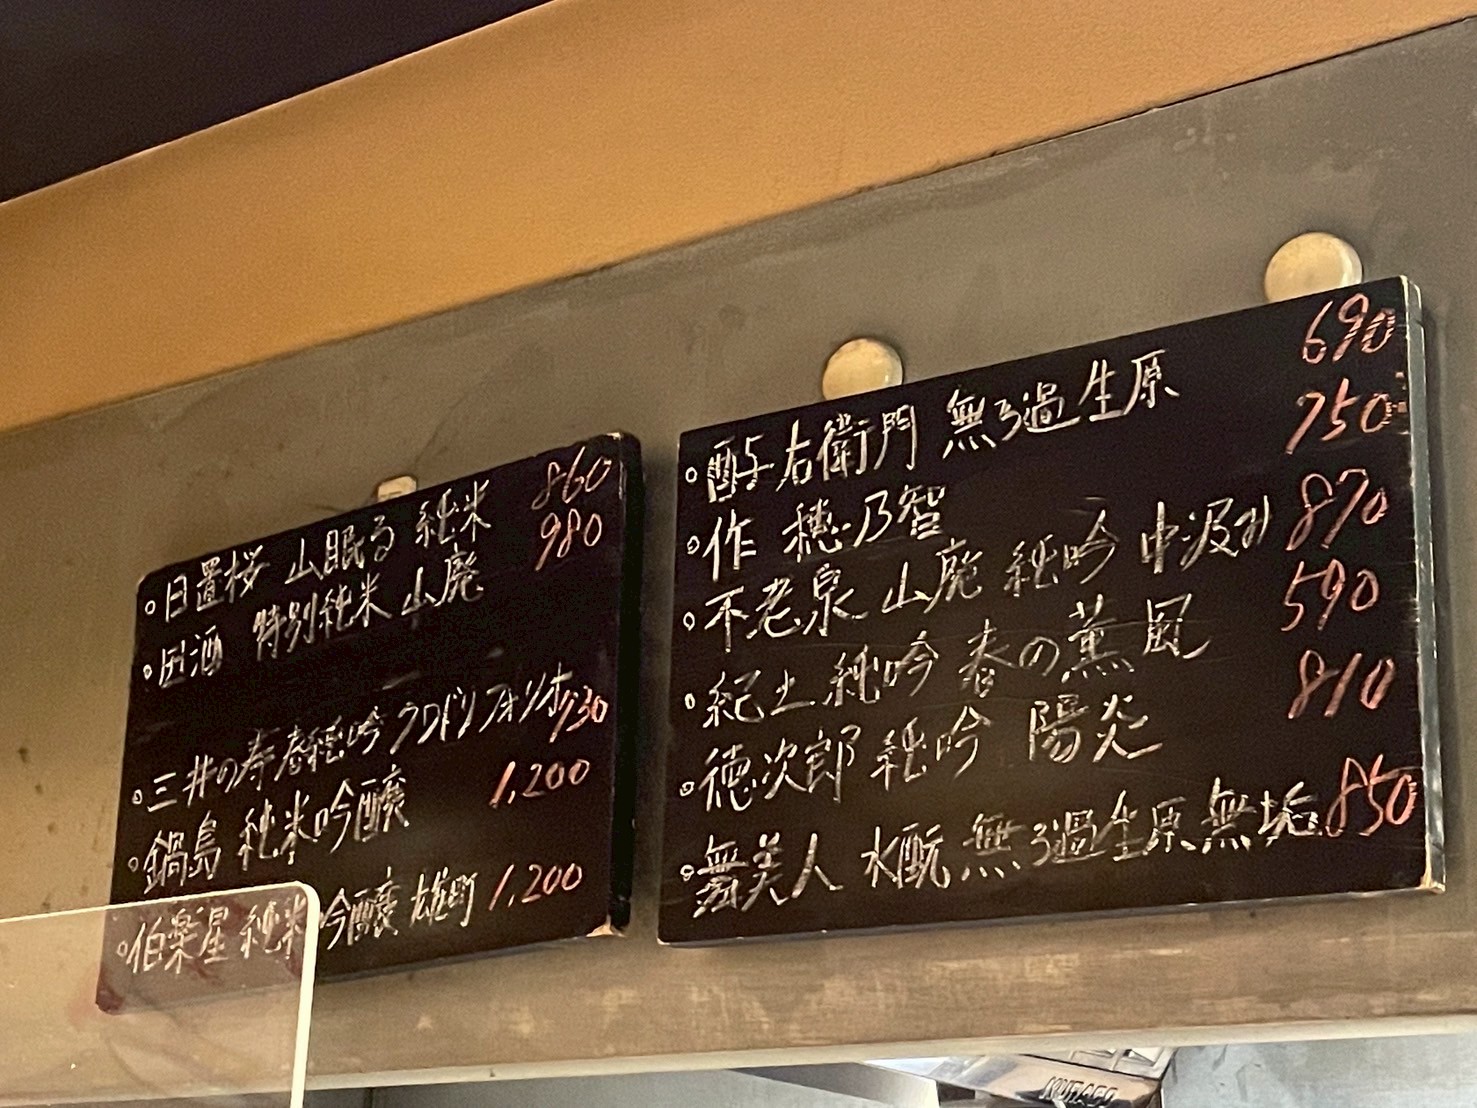 日置桜 山眠る 純米 860
田酒 特別純米 山廃 980
三井の寿 春純吟 クアドリフォリオ 930
鍋島 純米吟醸 1,200
伯楽星 純米吟醸 雄町 1,200
酉与右衛門 無ろ過生原 690
作 穂乃智 750
不老泉 山廃 純吟 中汲み 870
紀土 純吟 春の薫風 590
徳次郎 純吟 陽炎 810
舞美人 水酛 無ろ過生原 無垢 850